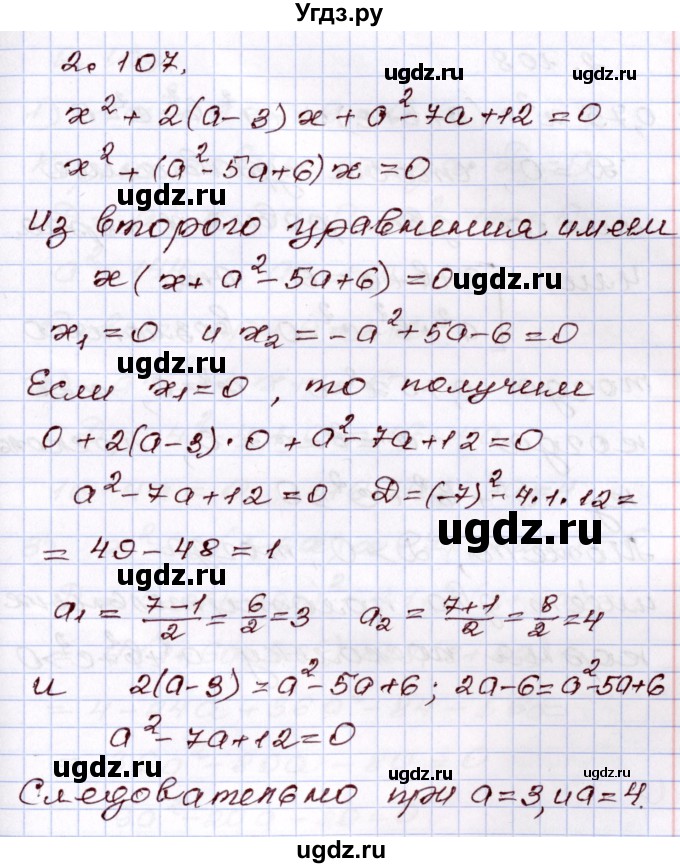 Угдз.ру
2.107.
ugdz.ru ugdz.ru
x² + 2(a-3)x + a² - 7a + 12 = 0
x² + (a² - 5a + 6)x = 0
ugdz.ru
Из второго уравнения имеем
x(x + a² - 5a + 6) = 0 ugdz.ru
x₁ = 0 и x₂ = -a² + 5a - 6 = 0
ugdz.ru
Если x₁ = 0, то получим
0 + 2(a-3)·0 + a² - 7a + 12 = 0
a² - 7a + 12 = 0 D = (-7)² - 4·1·12 =
ugdz.ru
= 49 - 48 = 1
ugdz.ru
a₁ = (7-1)/2 = 6/2 = 3 a₂ = (7+1)/2 = 8/2 = 4
и 2(a-3) = a² - 5a + 6; 2a - 6 = a² - 5a + 6
a² - 7a + 12 = 0
ugdz.ru ugdz.ru ugdz.ru
Следовательно при a = 3, и a = 4.
ugdz.ru